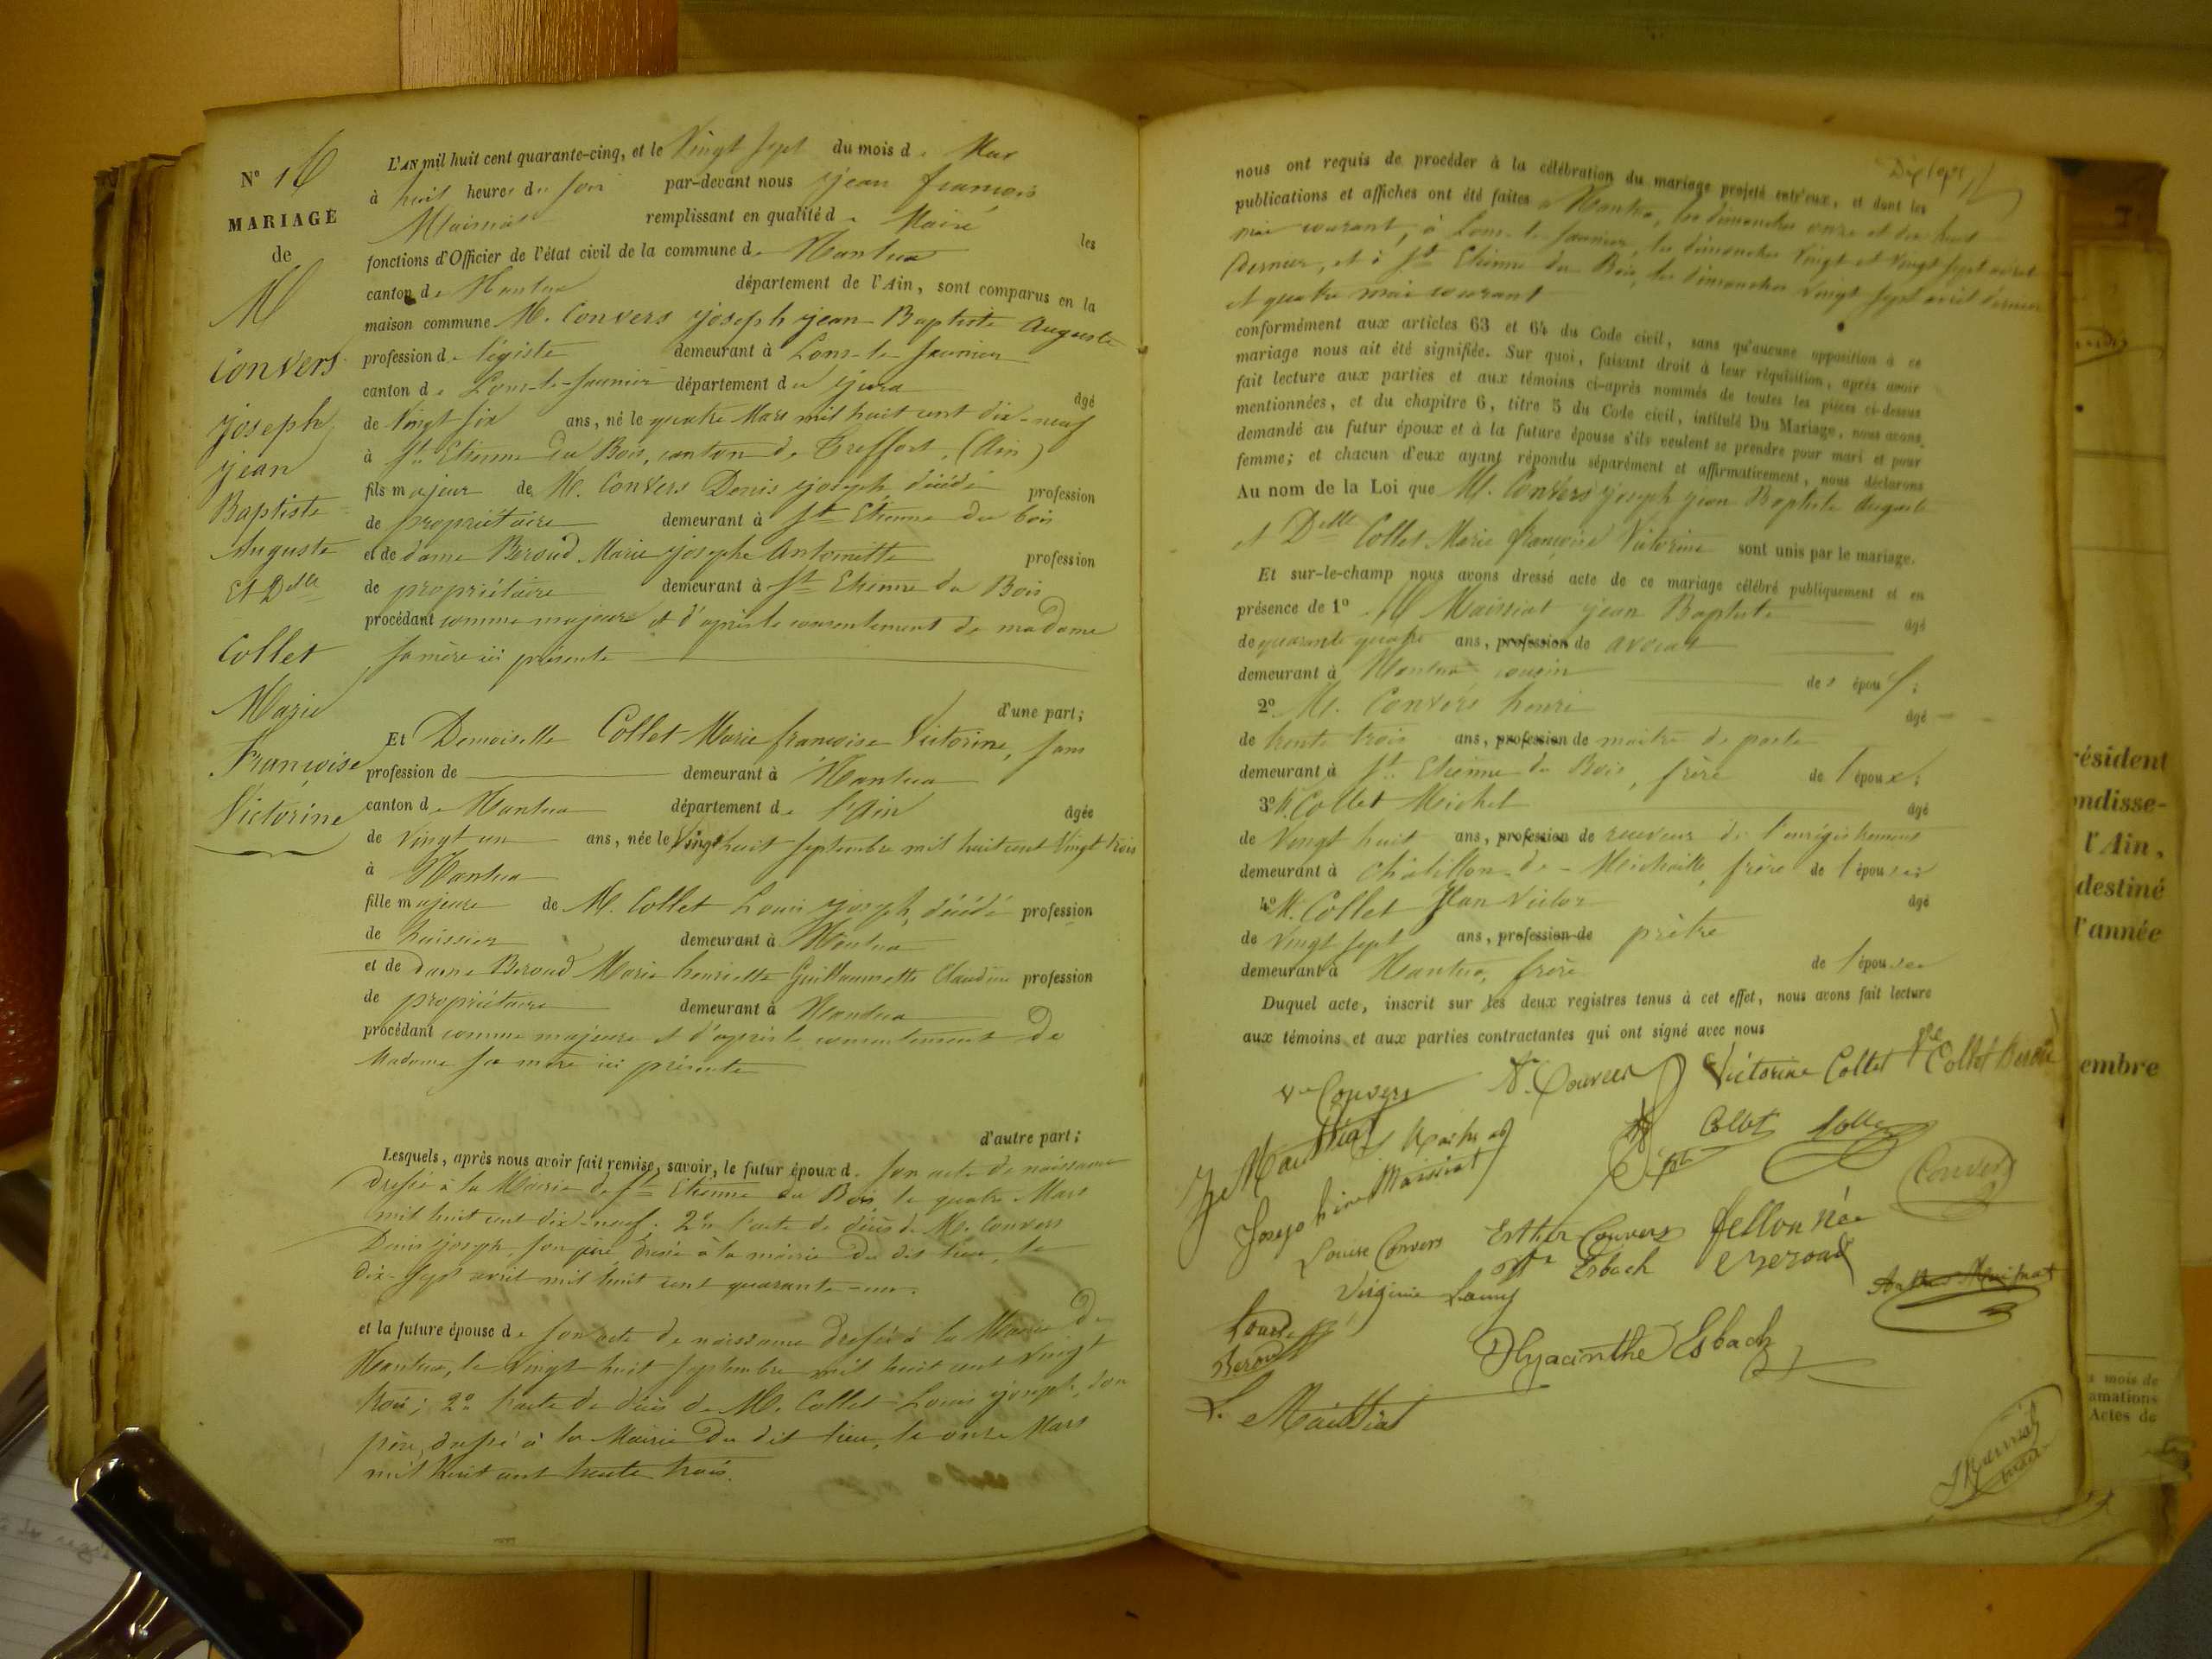 N° 16
MARIAGE
de
M
Convers
joseph
jean
Baptiste
Auguste
Et Delle
Collet
Marie
Françoise
Victorine
L'AN mil huit cent quarante-cinq, et le Vingt sept du mois de Mai
à huit heures du soir par-devant nous jean françois
Maissiat remplissant en qualité de Maire les
fonctions d'Officier de l'état civil de la commune de Nantua
canton de Nantua département de l'Ain, sont comparus en la
maison commune M. Convers joseph jean Baptiste Auguste
profession de légiste demeurant à Lons-le-Saunier
canton de Lons-le-Saunier département du jura âgé
de Vingt six ans, né le quatre Mars mil huit cent dix-neuf
à St Etienne du Bois, canton de Treffort, (Ain)
fils majeur de M. Convers Denis joseph, décédé profession
de propriétaire demeurant à St Etienne du bois
et de dame Beroud Marie josephe Antoinette profession
de propriétaire demeurant à St Etienne du Bois
procédant comme majeur et d'après le consentement de madame
sa mère ici présente
d'une part;
Et Demoiselle Collet Marie françoise Victorine, sans
profession de demeurant à Nantua
canton de Nantua département de l'Ain âgée
de vingt un ans, née le Vingt huit septembre mil huit cent vingt trois
à Nantua
fille majeure de M. Collet Louis joseph, décédé profession
de huissier demeurant à Nantua
et de dame Beroud Marie henriette Guillaumette Claudine profession
de propriétaire demeurant à Nantua
procédant comme majeure et d'après le consentement de
Madame sa mère ici présente
d'autre part;
Lesquels, après nous avoir fait remise, savoir, le futur époux de son acte de naissance
dressé à la Mairie de St Etienne du Bois, le quatre Mars
mil huit cent dix-neuf; 2° l'acte de décès de M. Convers
Denis joseph, son père, dressé à la mairie du dit lieu, le
dix-sept avril mil huit cent quarante-un.
et la future épouse de son acte de naissance dressé à la Mairie de
Nantua, le vingt huit septembre mil huit cent vingt
trois; 2° l'acte de décès de M. Collet Louis joseph, son
père, dressé à la Mairie du dit lieu, le onze Mars
mil huit cent trente trois.
nous ont requis de procéder à la célébration du mariage projeté entr'eux, et dont les
publications et affiches ont été faites à Nantua, les dimanches onze et dix huit
mai courant, à Lons-le-Saunier, les dimanches vingt et vingt sept avril
dernier, et à St Etienne du Bois, les dimanches vingt sept avril dernier
et quatre mai courant
conformément aux articles 63 et 64 du Code civil, sans qu'aucune opposition à ce
mariage nous ait été signifiée. Sur quoi, faisant droit à leur réquisition, après avoir
fait lecture aux parties et aux témoins ci-après nommés de toutes les pièces ci-dessus
mentionnées, et du chapitre 6, titre 5 du Code civil, intitulé Du Mariage, nous avons
demandé au futur époux et à la future épouse s'ils veulent se prendre pour mari et pour
femme; et chacun d'eux ayant répondu séparément et affirmativement, nous déclarons
Au nom de la Loi que M. Convers joseph jean Baptiste Auguste
et Delle Collet Marie françoise Victorine sont unis par le mariage.
Et sur-le-champ nous avons dressé acte de ce mariage célébré publiquement et en
présence de 1° M Maissiat jean Baptiste âgé
de quarante quatre ans, profession de avocat
demeurant à Nantua cousin des époux;
2° M. Convers henri âgé
de trente trois ans, profession de maître de poste
demeurant à St Etienne du Bois, frère de l'époux;
3° M. Collet Michel âgé
de Vingt huit ans, profession de receveur de l'enrégistrement
demeurant à Châtillon-de-Michaille, frère de l'épouse;
4° M. Collet Jean Victor âgé
de Vingt sept ans, profession de prêtre
demeurant à Nantua, frère de l'épouse
Duquel acte, inscrit sur les deux registres tenus à cet effet, nous avons fait lecture
aux témoins et aux parties contractantes qui ont signé avec nous
Ve Convers Ate Convers Victorine Collet Ve Collet Beroud
Je Maissiat Collet Collet
Josephine Maissiat Convers
Louise Convers Esther Convers fellon née
Esbach Beroud
Virginie Lamy
Louise
Beroud
Hyacinthe Esbach
L. Maissiat
résident
ondisse-
l'Ain,
destiné
l'année
embre
s mois de
amations
Actes de